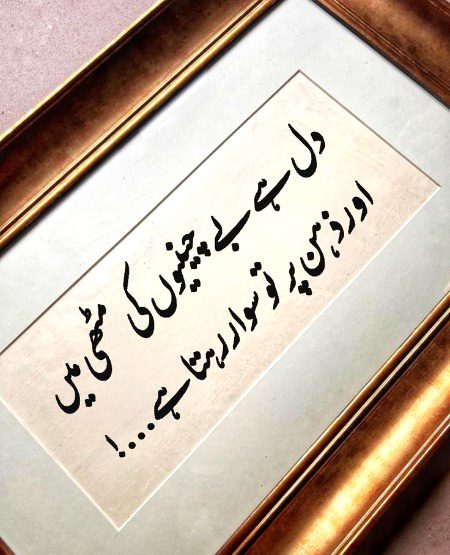 دل ہے بے چینیوں کی مٹھی میں
اور ذہن پر تو سوار رہتا ہے....!